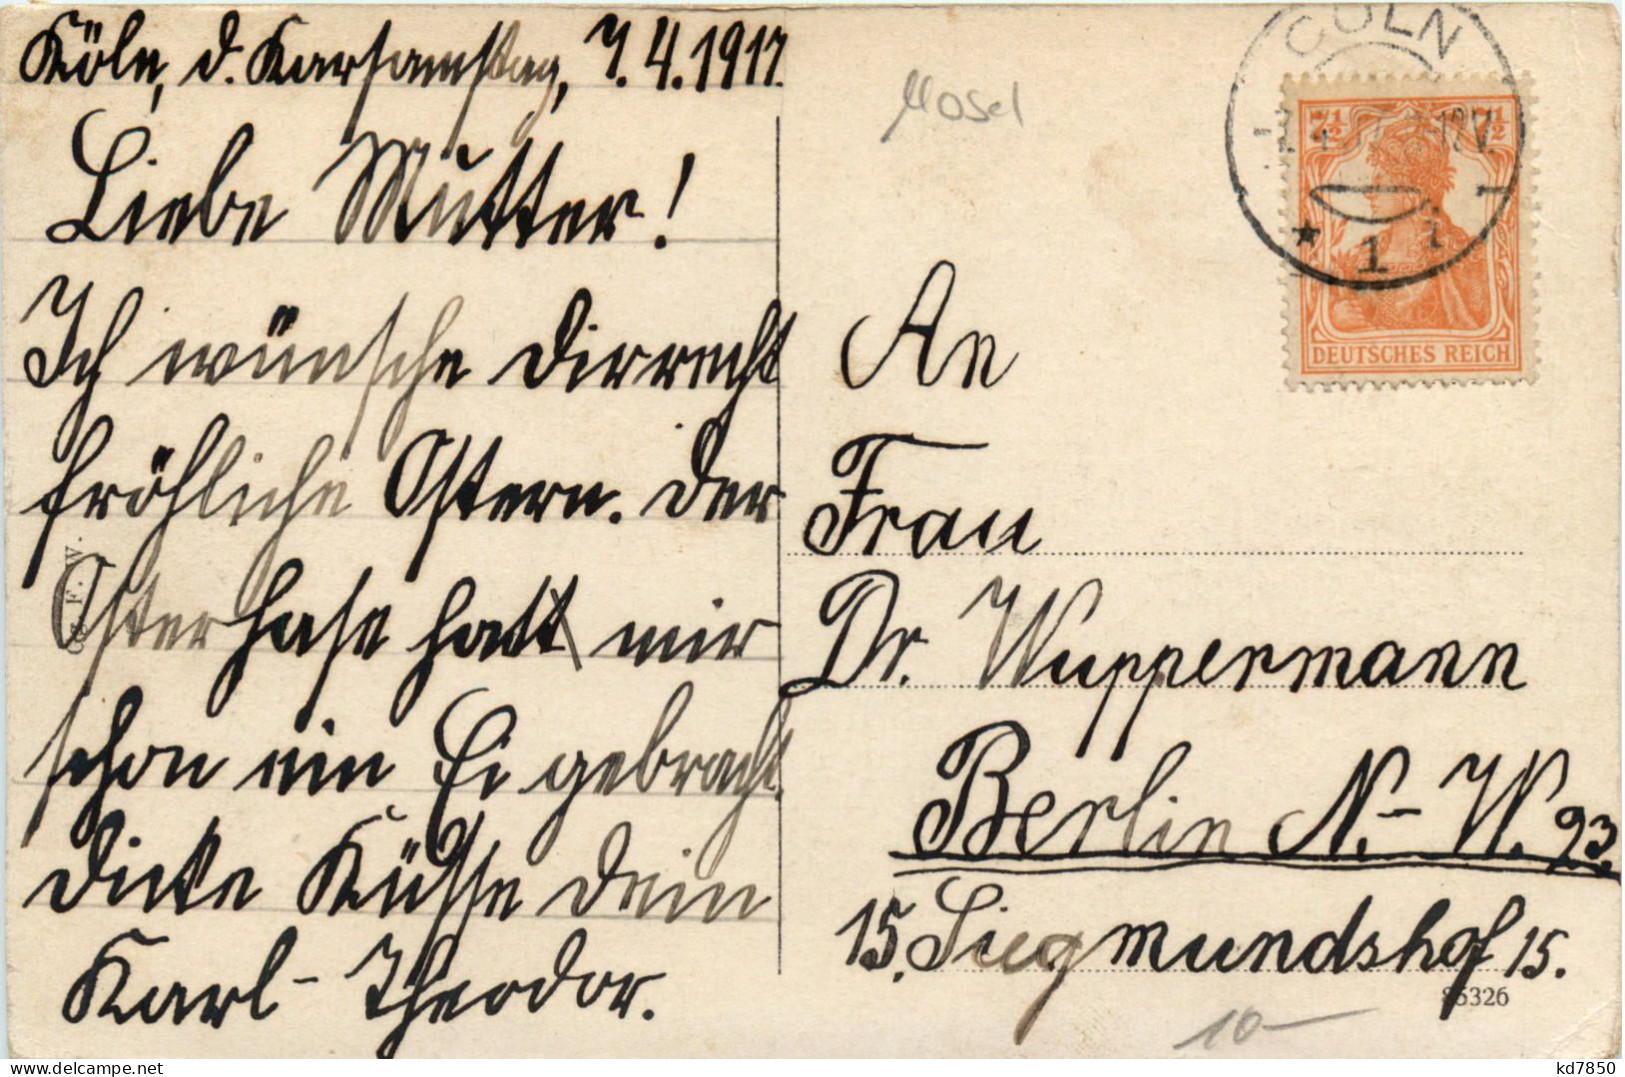 Köln, d. Karsamstag, 7.4.1917.
Liebe Mutter!
Ich wünsche dir recht
fröhliche Ostern. Der
Osterhase hatt mir
schon ein Ei gebracht.
Dicke Küsse dein
Karl-Theodor.
Mosel
CÖLN
* 1 i
7½ 7½
DEUTSCHES REICH
An
Frau
Dr. Wuppermann
Berlin N.-W. 23.
15. Siegmundshof 15.
85326
10-
kd7850